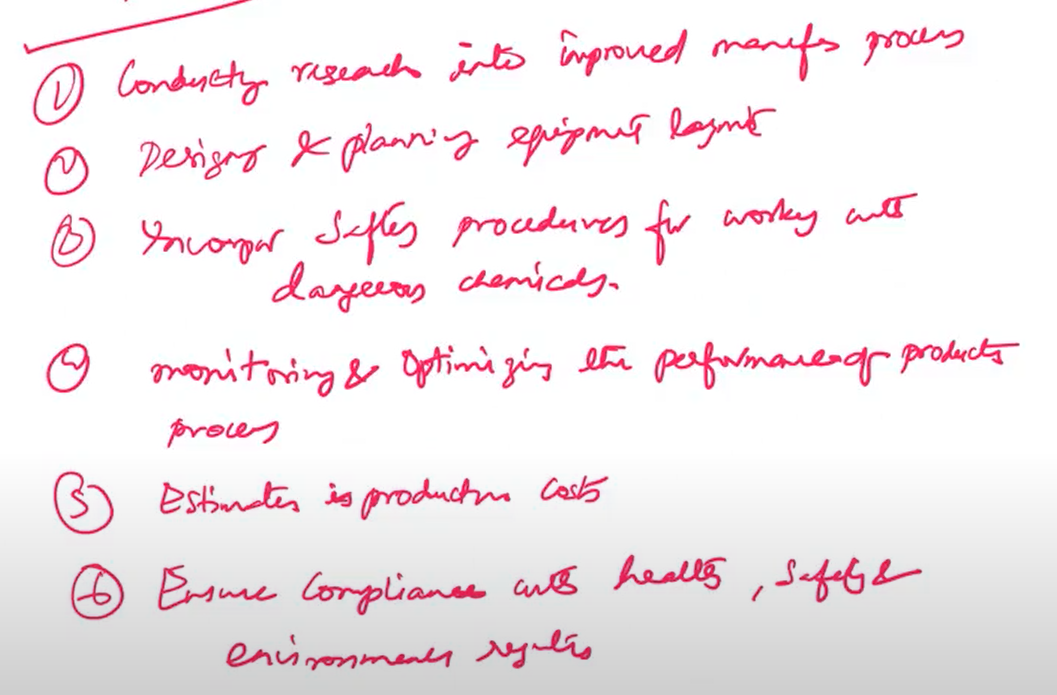 ① Conducty research into improved manufs process
② Designg & planning equipment layout
③ Incorpor Saftey procedures for workg with
dangerous chemicals.
④ monitoring & Optimizing the performance of products
process
⑤ Estimates is production Costs
⑥ Ensure Compliance with health, Safety &
environments regults